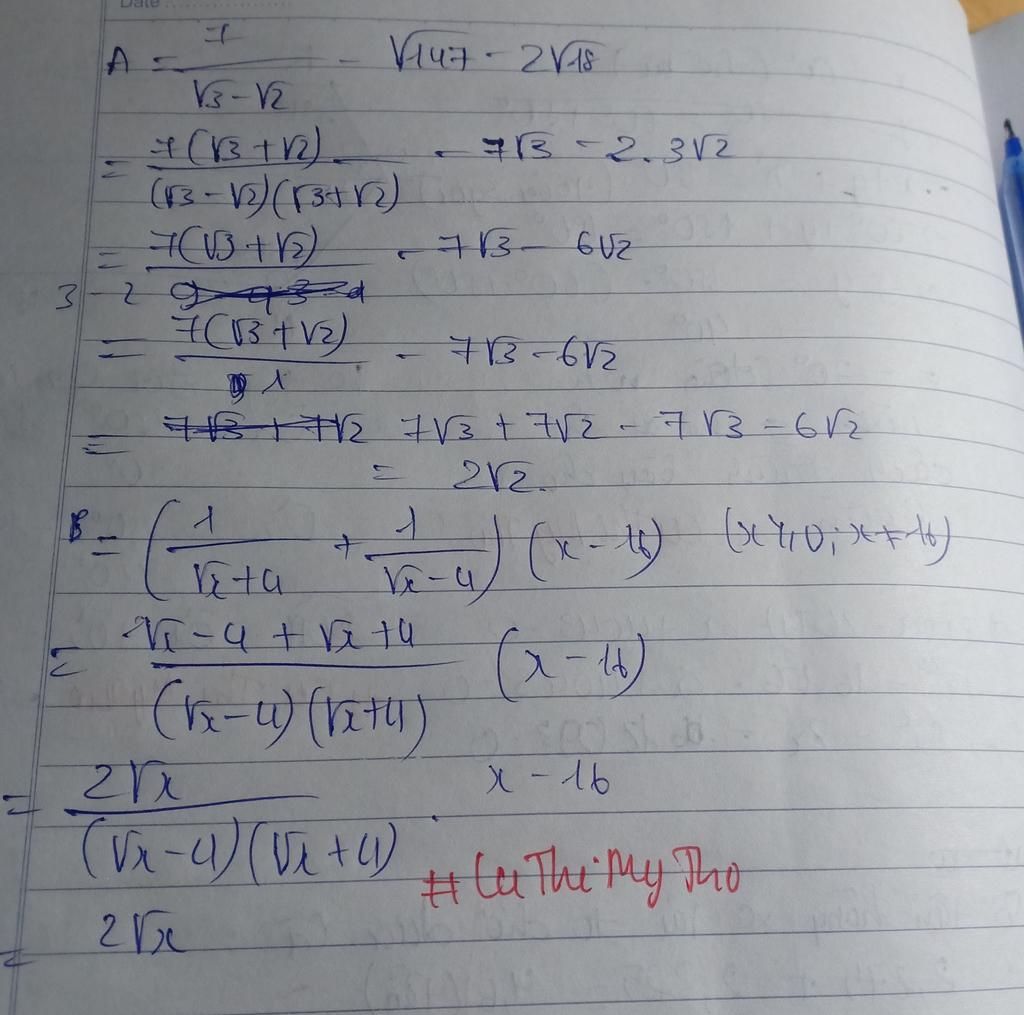 Date
A = 7/(√3 - √2) - √147 - 2√18
= 7(√3 + √2)/((√3 - √2)(√3 + √2)) - 7√3 - 2.3√2
= 7(√3 + √2)/(3 - 2) - 7√3 - 6√2
= 7(√3 + √2)/1 - 7√3 - 6√2
= 7√3 + 7√2 7√3 + 7√2 - 7√3 = 6√2
= 2√2.
B = (1/(√x + 4) + 1/(√x - 4)) (x - 16) (x ≥ 0; x ≠ 16)
= (√x - 4 + √x + 4)/((√x - 4)(√x + 4)) (x - 16)
= 2√x/((√x - 4)(√x + 4)) . x - 16
#LeThiMyTho
= 2√x